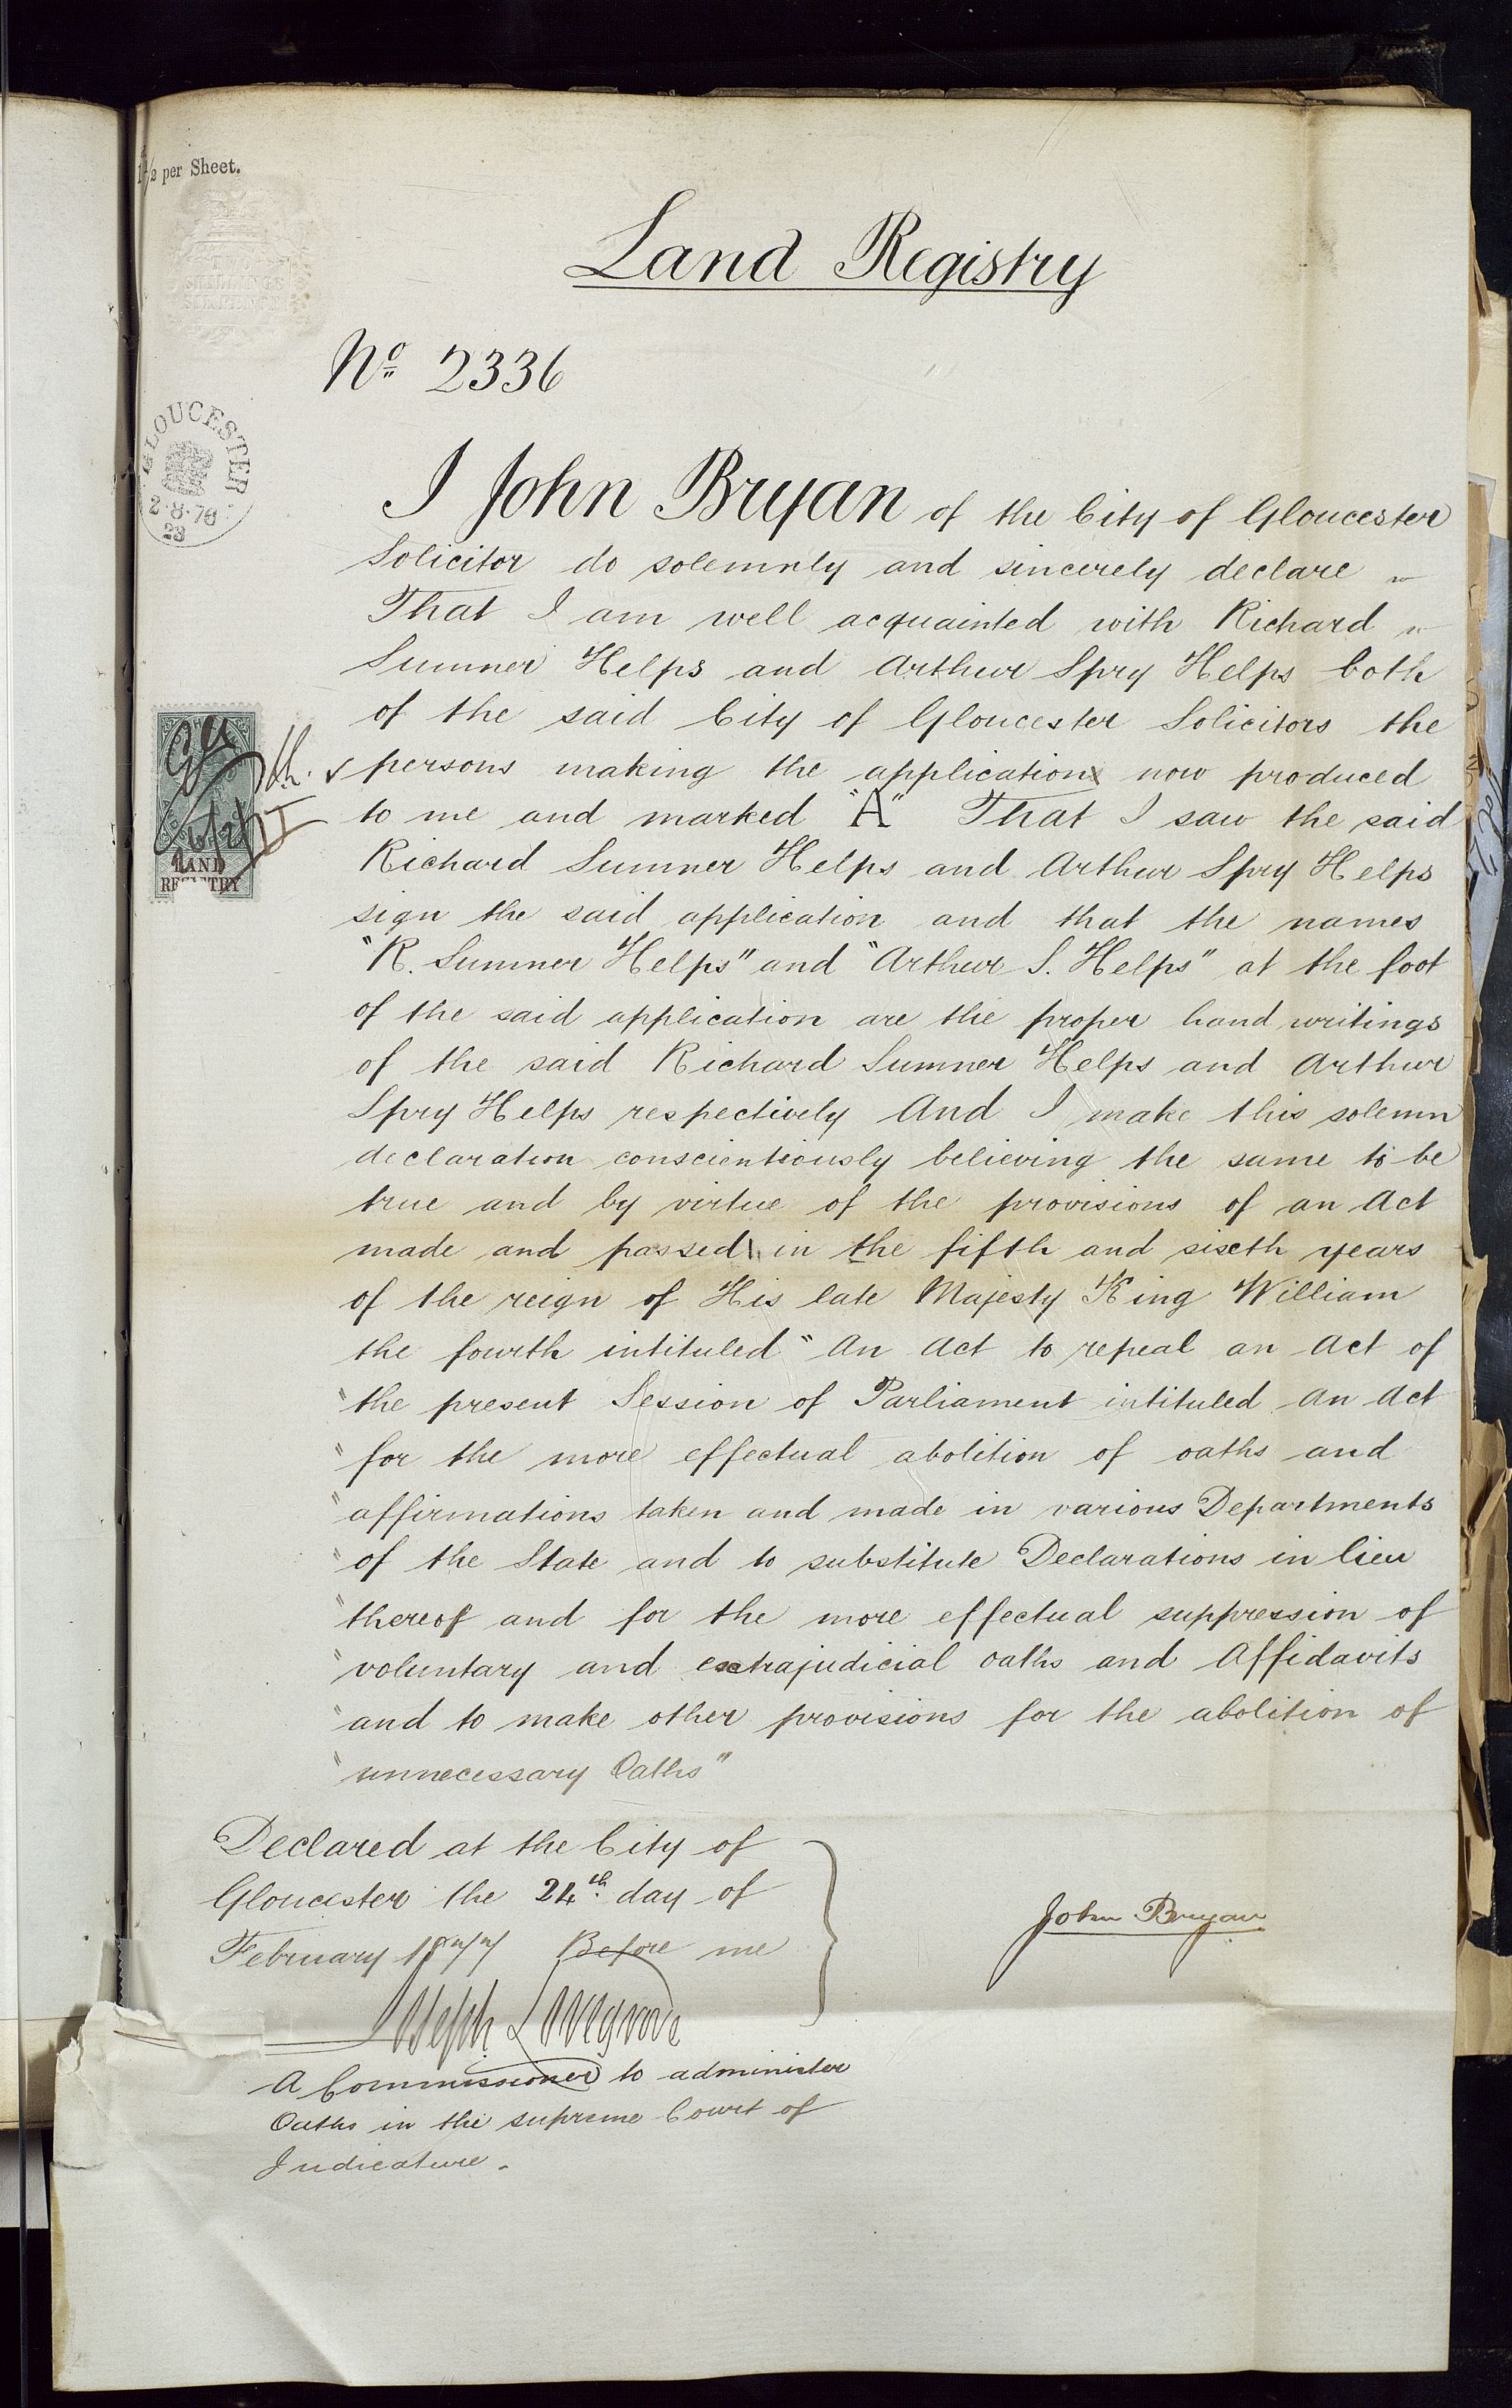 1½ per Sheet.
TWO
SHILLINGS
SIXPENCE
Land Registry
No. 2336
GLOUCESTER
2.8.76
23
I John Bryan of the City of Gloucester
Solicitor do solemnly and sincerely declare
That I am well acquainted with Richard
Sumner Helps and Arthur Spry Helps both
of the said City of Gloucester Solicitors the
persons making the application now produced
to me and marked "A" That I saw the said
LAND
REGISTRY
Richard Sumner Helps and Arthur Spry Helps
sign the said application and that the names
"R. Sumner Helps" and "Arthur S. Helps" at the foot
of the said application are the proper hand writings
of the said Richard Sumner Helps and Arthur
Spry Helps respectively And I make this solemn
declaration conscientiously believing the same to be
true and by virtue of the provisions of an Act
made and passed in the fifth and sixth years
of the reign of His late Majesty King William
the fourth intituled "An Act to repeal an Act of
"the present Session of Parliament intituled An Act
"for the more effectual abolition of oaths and
"affirmations taken and made in various Departments
"of the State and to substitute Declarations in lieu
"thereof and for the more effectual suppression of
"voluntary and extrajudicial oaths and Affidavits
"and to make other provisions for the abolition of
"unnecessary Oaths"
Declared at the City of
Gloucester the 24th day of
February 1877 Before me
John Bryan
Joseph Lovegrove
A Commissioner to administer
Oaths in the supreme Court of
Judicature.